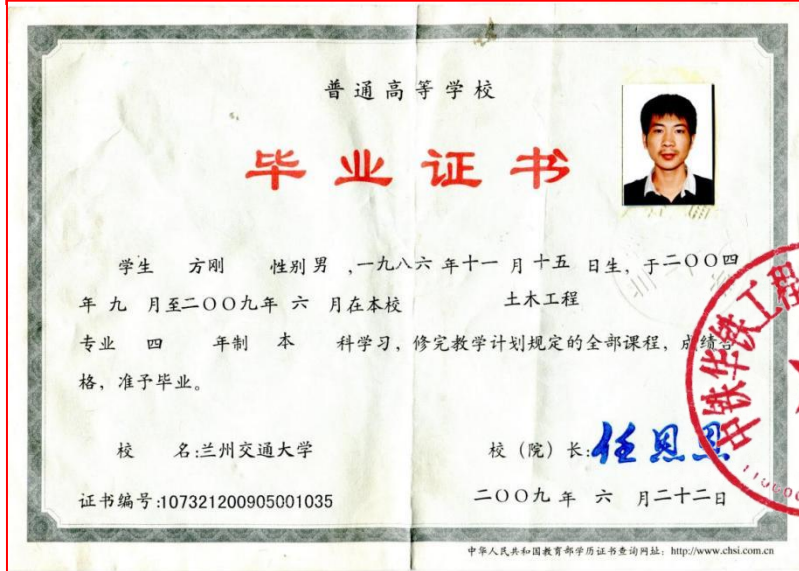 普通高等学校
毕业证书
学生 方刚 性别 男 ,一九八六 年 十一 月 十五 日生, 于二〇〇四
年 九 月至二〇〇九年 六 月在本校 土木工程
专业 四 年制 本 科学习, 修完教学计划规定的全部课程, 成绩合
格, 准予毕业。
校 名:兰州交通大学
校 (院) 长:任恩恩
证书编号:107321200905001035
二〇〇九 年 六 月二十二日
中铁华铁工程
中华人民共和国教育部学历证书查询网址: http://www.chsi.com.cn